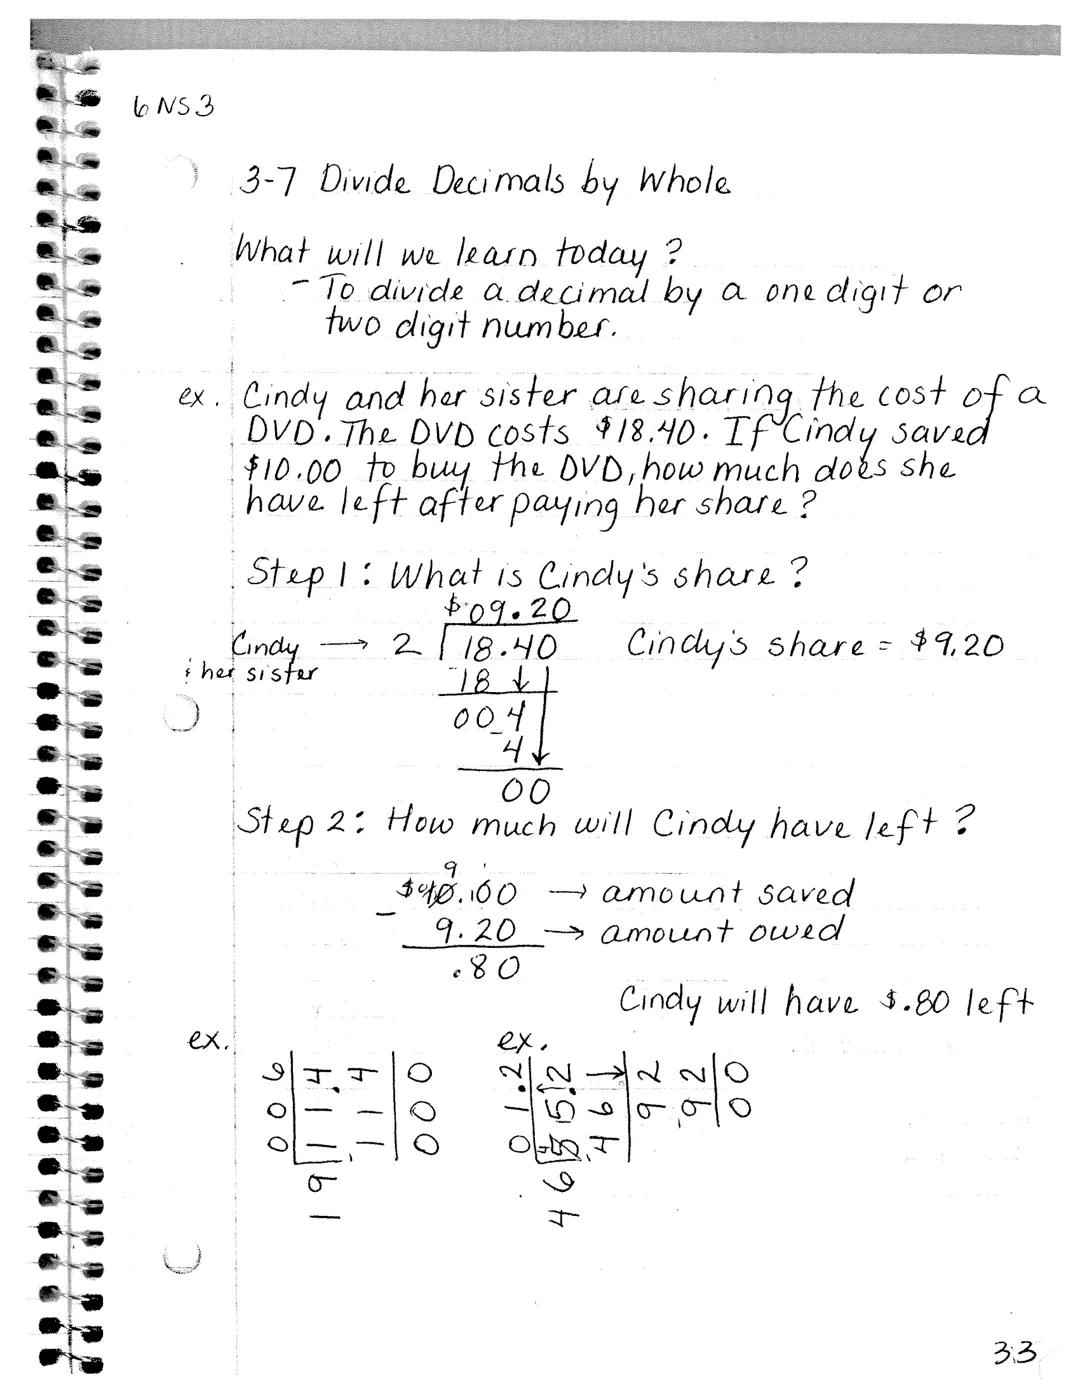 6NS3
3-7 Divide Decimals by Whole
What will we learn today?
- To divide a decimal by a one digit or
two digit number.
ex. Cindy and her sister are sharing the cost of a
DVD. The DVD costs $18.40. If Cindy saved
$10.00 to buy the DVD, how much does she
have left after paying her share?
Step 1: What is Cindy's share?
$09.20
Cindy → 2 18.40 Cindy's share = $9.20
& her sister
-18 ↓
00 4
- 4 ↓
00
Step 2: How much will Cindy have left?
9
$10.00 → amount saved
- 9.20 → amount owed
.80
Cindy will have $.80 left
ex.
006
19 11.4
-114
000
ex.
01.2
46 55.2
-46 ↓
92
-92
00
33